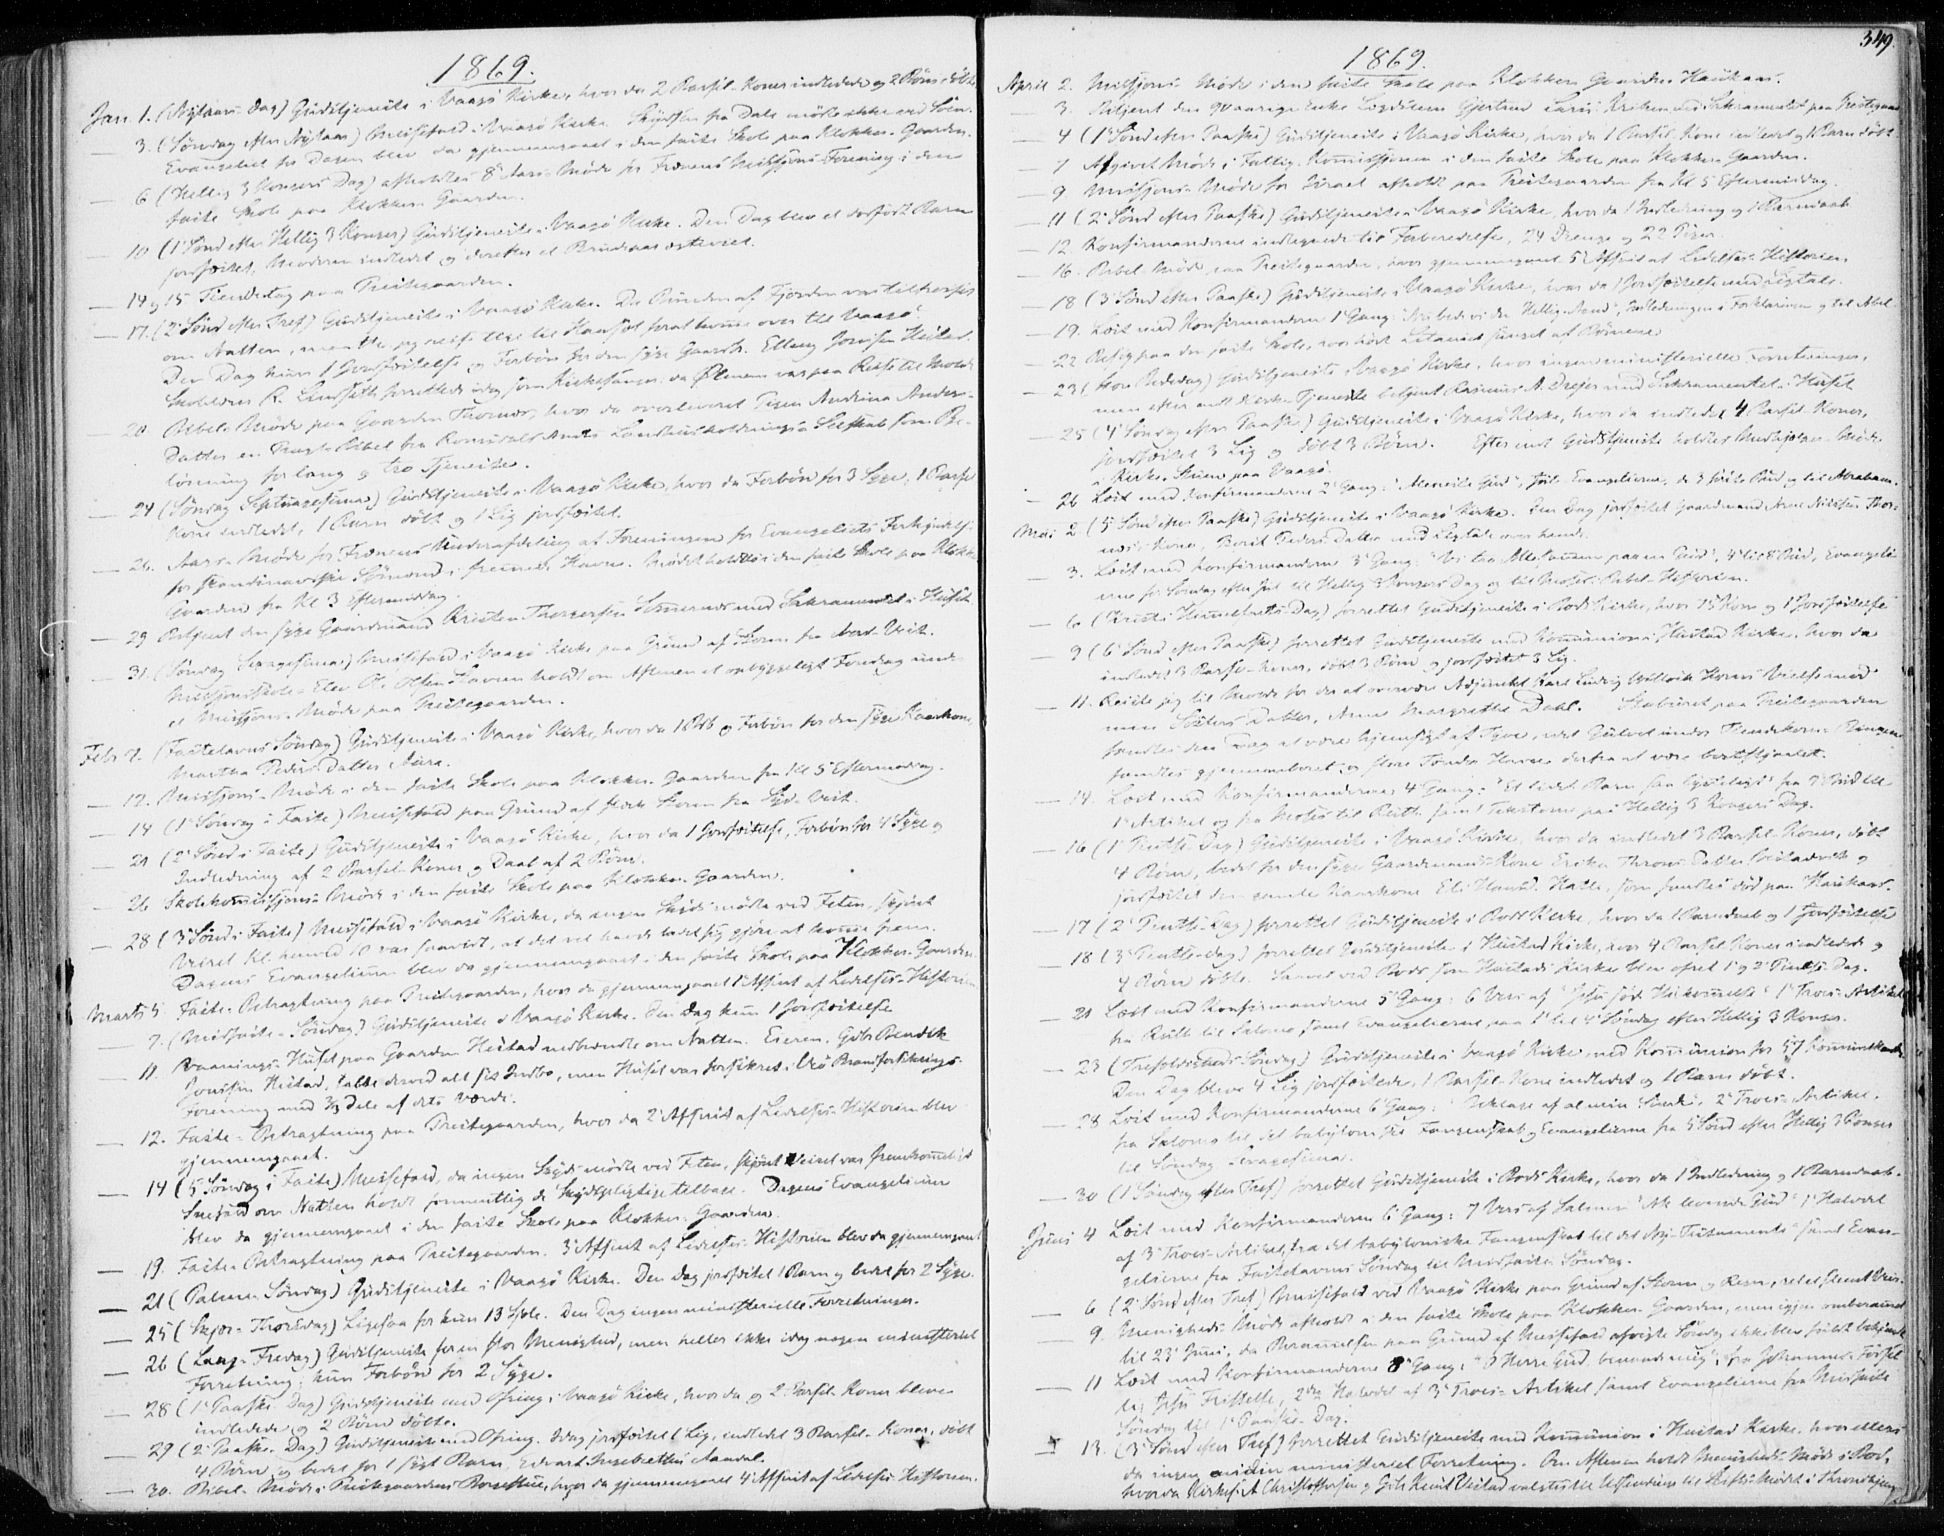 1869.
Jan. 1. (Nytaars Dag) Gudstjeneste i Vaagø Kirke, hvor da 2 Barsel-Koner indledede og 2 Børn døbte
— 3. (Søndag efter Nytaar) Messefald i Vaagø Kirke. Skydsen fra Dale mødte ikke
Evangeliet for Dagen blev da gjennemgaaet i den faste Skole paa Klokker-Gaarden.
— 6 (Hellig 3 Kongers Dag) afholdtes 8de Aars-Møde for Frænens Missjons-Forening i den
faste Skole paa Klokker-Gaarden.
— 10 (1 Sønd efter Hellig 3 Konger) Gudstjeneste i Vaagø Kirke. Den Dag blev et dødfødt Barn
jordfæstet, Moderen indledet og derefter et Brudepar
— 14 og 15 Tiendetag paa Præstegaarden.
— 17. (2 Sønd efter Href) Gudstjeneste i Vaagø Kirke. Da Bunden af Fjorden var tilfrossen
om Natten, maatte jeg reise til Harsøt for at komme over til Vaagø.
Den Dag kun 1 Jordfæstelse og Forbøn for den syge Gaardb. Elling Jonsen Hustad.
Skoleholder R. Lindseth forrettede idag som Kirkesanger, da Ølmem var paa Reise til Molde
20. Bibel-Møde paa Gaarden Thornes, hvor da overleveret Pigen Andrina Anders-
Datter en Pragt-Bibel fra Romsdals Amts Landhusholdnings-Selskab som Be-
lønning for lang og tro Tjeneste.
— 24 (Søndag Septuagesima) Gudstjeneste i Vaagø Kirke, hvor da Forbøn for 3 Syge, 1 Barsel
Kone indledet, 1 Barn døbt og 1 Lig jordfæstet.
— 26. Aars-Møde for Frænens Underafdeling af Foreningen for Evangeliets Forkyndelse
for skandinaviske Sømænd i fremmede Havne. Mødet holdtes i den faste Skole paa Klokker
Gaarden fra Kl 3 Eftermiddag.
— 29 Betjent den syge Gaardmand Kristen Thorgersen med Sakramentet i Huset
— 31. (Søndag Sexagesima) Messefald i Vaagø Kirke paa Grund af Storm fra Nord-Vest.
Missjonsskole-Elev Ole Olsen holdt om Aftenen et opbyggeligt Foredrag under
et Missjons-Møde paa Præstegaarden.
Febr 7. (Fastelavns Søndag) Gudstjeneste i Vaagø Kirke, hvor da 1 Daab og Forbøn for den syge Kaarkone
Martha Peders-Datter Aura.
— 12. Missjons-Møde i den faste Skole paa Klokker-Gaarden fra Kl 5 Eftermiddag.
— 14 (1 Søndag i Faste) Messefald paa Grund af stærk Storm fra Syd-Vest.
— 21 (2 Sønd i Faste) Gudstjeneste i Vaagø Kirke, hvor da 1 Jordfæstelse, Forbøn for 4 Syge og
Indledning af 2 Barsel-Koner og Daab af 2 Børn.
— 26 Skolekommissjons-Møde i den faste Skole paa Klokker-Gaarden.
— 28 (3 Sønd i Faste) Messefald i Vaagø Kirke, da ingen Skyds mødte ved Feten, skjønt
Veiret Kl. henved 10 var saavidt, at det vel havde ladet sig gjøre at komme frem.
Dagens Evangelium blev da gjennemgaaet i den faste Skole paa Klokker-Gaarden
Marts 5. Faste-Betragtning paa Præstegaarden, hvor da gjennemgaaet 1 Afsnit af Lidelses-Historien
— 7. (Midfaste-Søndag) Gudstjeneste i Vaagø Kirke. Den Dag kun 1 Jordfæstelse
— 11. Vaanings-Huset paa Gaarden Hustad nedbrændte om Natten. Eieren, Gdbr Bendik
Jonssen Hustad, tabte derved alt sit Indbo, men Huset var forsikret i Brandforsikrings-
Forening med 2/3 Dele af dets Værdi.
— 12. Faste-Betragtning paa Præstegaarden, hvor da 2 Afsnit af Lidelses-Historien blev
gjennemgaaet.
— 14 (5 Søndag i Faste) Messefald, da ingen Skyds mødte ved Feten, skjønt Veiret var fremkommeligt
Snefald om Natten holdt formentlig de Skydspligtige tilbage. Dagens Evangelium
blev da gjennemgaaet i den faste Skole paa Klokker-Gaarden.
— 19. Faste-Betragtning paa Præstegaarden. 3 Afsnit af Lidelses-Historien blev da gjennemgaaet
— 21 (Palme-Søndag) Gudstjeneste i Vaagø Kirke. Den Dag jordfæstet 1 Barn og bedet for 2 Syge.
— 25 (Skjær-Thorsdag) Ligesaa for kun 13 Sjæle. Den Dag ingen ministerielle Forretninger.
— 26 (Lang-Fredag) Gudstjeneste for en stor Menighed, men heller ikke idag nogen ministeriel
Forretning; kun Forbøn for 2 Syge.
— 28 (1 Paaske-Dag) Gudstjeneste med Ofring i Vaagø Kirke, hvor da og 2 Barsel-Koner bleve
indledede og 2 Børn døbte.
— 29 (2 Paaske-Dag) Gudstjeneste med Ofring. Idag jordfæstet 1 Lig, indledet 3 Barsel-Koner, døbt
4 Børn og bedet for 1 sygt Barn, Edvart Aandal.
— 30. Bibel-Møde i Præstegaardens Borgestue, hvor da gjennemgaaet 4 Afsnit af Lidelses-Historien.
349.
1869.
April 2. Missjons-Møde i den faste Skole paa Klokker Gaarden Haukaas.
— 3. Betjent den 90 aarige Enke Gjertrud Lars med Sakramentet paa Præstegaarden
— 4 (1 Sønd efter Paaske) Gudstjeneste i Vaagø Kirke, hvor da 1 Barsel-Kone indledet og 1 Barn døbt
— 7 Afgivet Møde i Fattig-Kommissjonen i den faste Skole paa Klokker-Gaarden.
— 9 Missjons-Møde for Israel afholdt paa Præstegaarden fra Kl 5 Eftermiddag.
— 11 (2 Sønd efter Paaske) Gudstjeneste i Vaagø Kirke, hvor da 1 Indledning og 1 Barnedaab
— 12. Konfirmanderne indtegnede til Forberedelse, 24 Drenge og 22 Piger.
— 16. Bibel-Møde paa Præstegaarden, hvor gjennemgaaet 5 Afsnit af Lidelses-Historien
— 18 (3 Sønd efter Paaske) Gudstjeneste i Vaagø Kirke, hvor da 1 Jordfæstelse med Ligtale.
— 19. Læst med Konfirmanderne 1 Gang: Nu bede vi den Hellig Aand, Indledningen i Forklaringen og til Abel
— 22 Besøg paa den faste Skole, hvor hørt Litaniet sunget af Børnene
— 23 (Store Bededag) Gudstjeneste i Vaagø Kirke, hvor ingen ministerielle Forretninger,
men efter endt Kirke-Tjeneste betjent Rasmus A. Drejer med Sakramentet i Huset
— 25 (4 Søndag efter Paaske) Gudstjeneste i Vaagø Kirke, hvor da indledet 4 Barsel-Koner,
jordfæstet 3 Lig og døbt 3 Børn. Efter endt Gudstjeneste holdtes Medhjælper-Møde
i Kirke-Stuen paa Vaagø.
— 26 Læst med Konfirmanderne 2 Gang: Gud, Evangelierne, de 3 første Bud og til Abraham.
Mai 2 (5 Sønd efter Paaske) Gudstjeneste i Vaagø Kirke. Den Dag jordfæstet Gaardmand Arne Nilssen Thor-
næs Kone, Berit Peders-Datter med Ligtale over hende.
— 3. Læst med Konfirmanderne 3 Gang: Vi tro Allesammen paa en Gud, 4 til 8 Bud, Evangeli-
erne fra Søndag efter Jul til Hellig 3 Kongers Dag og til Moses i Bibel-Historien.
— 6 (Kristi Himmelfarts-Dag) forrettet Gudstjeneste i Bods Kirke, hvor 1 Kone og 1 Jordfæstelse
— 9 (6 Sønd efter Paaske) forrettet Gudstjeneste med Kommunion i Hustad Kirke, hvor da
indledet 3 Barsel-Koner, døbt 3 Børn og jordfæstet 3 Lig.
— 11. Reiste jeg til Molde for der at overvære Adjunkt Karl Ludvig Horns Vielse med
min Søsters Datter, Anne Margrethe Dahl. Stabburet paa Præstegaarden
fandtes den Dag at være hjemsøgt af Tyve, idet Gulvet under Tiendekorn-Bingen
fandtes gjennemboret og flere Tønder Havre derfra at være bortstjaalet.
— 14. Læst med Konfirmanderne 4 Gang: Et lidet Barn saa lysteligt fra 9 Bud til
1 Artikel og fra Moses til Ruth samt Teksterne paa Hellig 3 Kongers Dag.
— 16 (1 Pintse Dag) Gudstjeneste i Vaagø Kirke, hvor da indledet 3 Barsel-Koner, døbt
4 Børn, bedet for den syge Gaardmands Kone Erika Throns Datter og
jordfæstet den gamle Kaarkone Eli, som fandtes død paa Haukaas.
— 17 (2 Pintse-Dag) forrettet Gudstjeneste i Bods Kirke, hvor da 1 Barnedaab og 1 Jordfæstelse
— 18 (3 Pintse-Dag) forrettet Gudstjeneste i Hustad Kirke, hvor 4 Barsel-Koner indledede og
4 Børn døbte. Saavel ved Bods som Hustads Kirke blev ofret 1 og 2 Pintse-Dag.
— 21 Læst med Konfirmanderne 5 Gang: 6 Vers af Jesu sød Hukommelse 1 Troes-Artikel
fra Ruth til Salomo samt Evangelierne paa 1 til 4 Søndag efter Hellig 3 Konger.
— 23 (Trefoldigheds Søndag) Gudstjeneste i Vaagø Kirke, med Kommunion for 57 Kommunikanter
Den Dag bleve 4 Lig jordfæstede, 1 Barsel-Kone indledet og 1 Barn døbt.
— 28 Læst med Konfirmanderne 6 Gang: Beklage af al min Sinde, 2 Troes-Artikel.
fra Salomo til det babyloniske Fangenskab og Evangelierne fra 5 Sønd efter Hellig 3 Konger
til Søndag Sexagesima.
— 30 (1 Søndag efter Tref) forrettet Gudstjeneste i Bods Kirke, hvor da 1 Indledning og 1 Barnedaab.
Juni 4 Læst med Konfirmanderne 6 Gang: 7 Vers af Salmen Ak levende Gud 1 Halvdel
af 3 Troes-Artikel, fra det babyloniske Fangenskab til det Ny-Testamente samt Evan-
gelierne fra Fastelavns Søndag til Midfaste Søndag.
— 6 (2 Sønd efter Tref) Messefald ved Vaagø Kirke paa Grund af Storm og Regn, ret et slemt Veir.
— 9. Menigheds-Møde afholdt i den faste Skole paa Klokker-Gaarden, men igjen omberammet
til 23 Juni, da Berammelsen paa Grund af Messefald afvigte Søndag ikke blev fuldt bekjendt
— 11 Læst med Konfirmanderne 8 Gang: O Herre Gud benaade mig, fra Johannes Fødsel
til Jesu Fristelse, 2den Halvdel af 3 Troes-Artikel samt Evangelierne fra Midfaste
Søndag til 1 Paaske-Dag.
— 13. (3 Sønd efter Tref) forrettet Gudstjeneste med Kommunion i Hustad Kirke, hvor ellers
da ingen anden ministeriel Forretning. Om Aftenen holdt Menigheds-Møde i Bod,
hvor da Kirkes. A Christoffersen og Gdb Knut Hustad valgtes til Udsendinge til Stifts-Mødet i Throndhjem